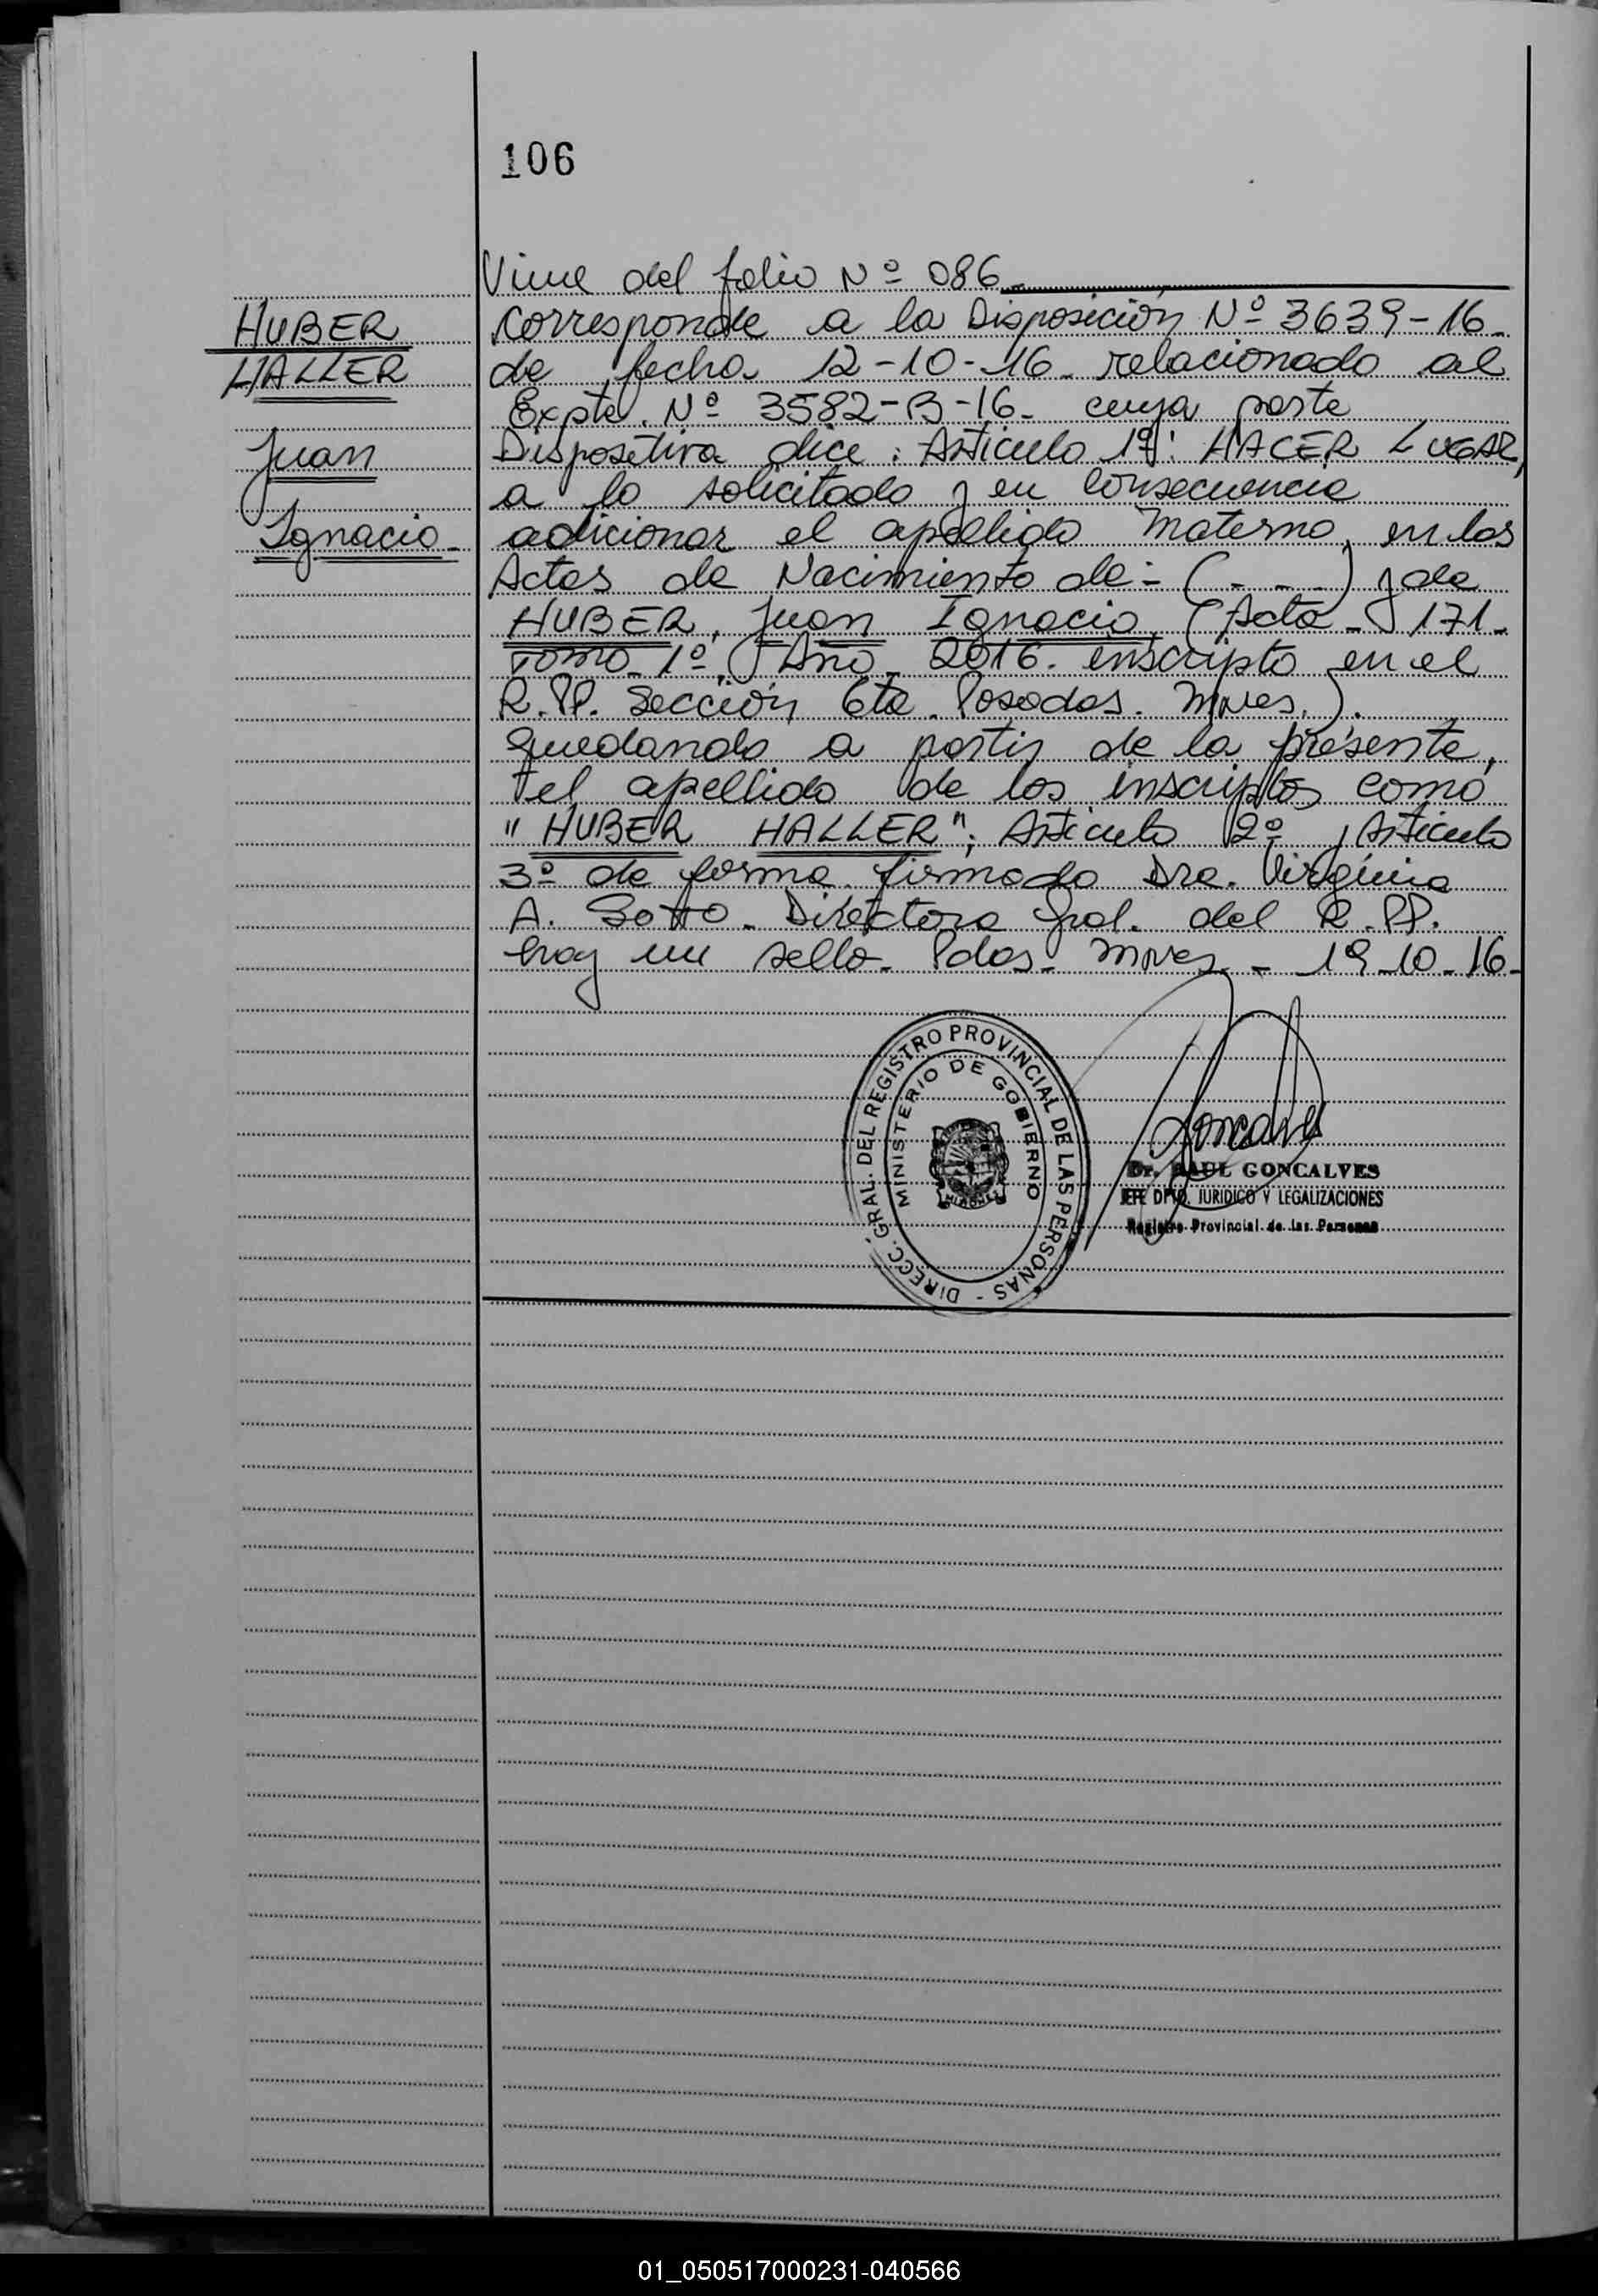 106
Viene del folio Nº 086
HUBER
HALLER
Juan
Ignacio
Corresponde a la Disposición Nº 3639-16.
de fecha 12-10-16. relacionado al
Expte. Nº 3582-B-16. cuya parte
Dispositiva dice: Artículo 1º: HACER LUGAR,
a lo solicitado y en consecuencia
adicionar el apellido materno, en las
Actas de Nacimiento de:- (- - -) y de
HUBER, Juan Ignacio, (Acta - 171-
Tomo 1º, Año 2016. inscripto en el
R.PP. Sección 6ta. Posadas. Mnes.).
quedando a partir de la presente,
el apellido de los inscriptos como
"HUBER HALLER"; Artículo 2º y Artículo
3º de forma. firmado Dra. Virginia
A. Sotto. Directora Gral. del R.PP.
hay un sello. Pdas. Mnes. - 19-10-16-
DIRECC. GRAL. DEL REGISTRO PROVINCIAL DE LAS PERSONAS -
MINISTERIO DE GOBIERNO
MISIONES
Goncalves
Dr. RAUL GONCALVES
JEFE DPTO. JURIDICO Y LEGALIZACIONES
Registro Provincial de las Personas
01_050517000231-040566